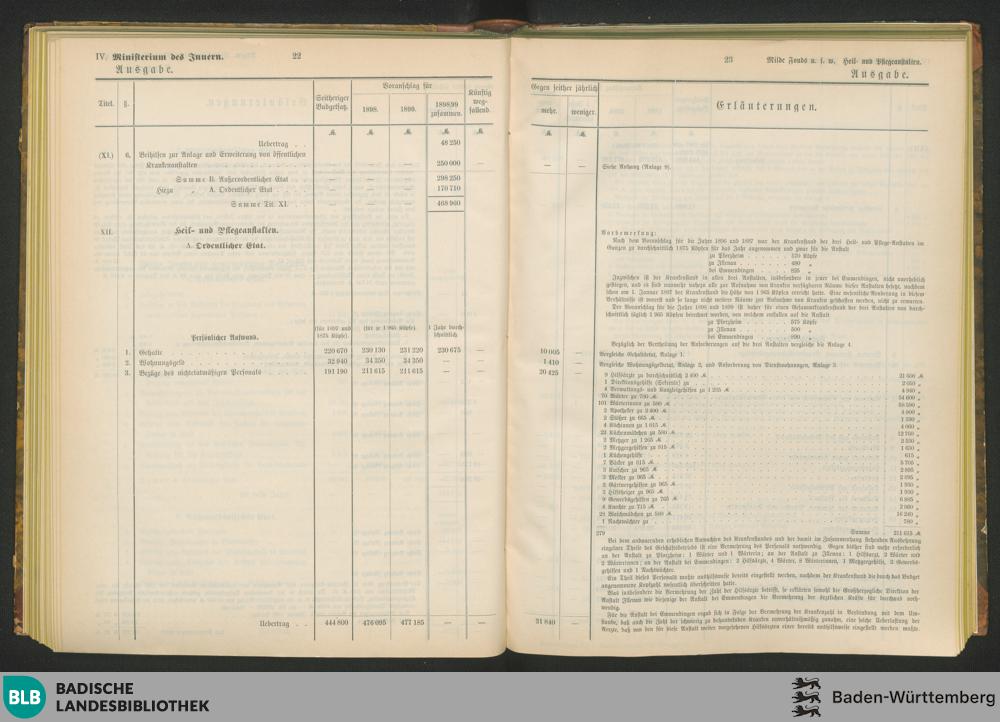 IV. Ministerium des Innern. 22
Ausgabe.
Titel. §. Seitheriger Budgetsatz. Voranschlag für 1898. 1899. 1898/99 zusammen. Künftig wegfallend.
ℳ ℳ ℳ ℳ ℳ
Uebertrag . . 48 250
(XI.) 6. Beihilfen zur Anlage und Erweiterung von öffentlichen
Krankenanstalten — — — 250 000 —
Summe B. Außerordentlicher Etat — — — 298 250
Hiezu „ A. Ordentlicher Etat — — — 170 710
Summe Tit. XI. — — — 468 960
XII. Heil- und Pflegeanstalten.
A. Ordentlicher Etat.
Persönlicher Aufwand. (für 1897 und 1875 Köpfe). (für je 1 965 Köpfe). 1 Jahr durchschnittlich
1. Gehalte 220 670 230 130 231 220 230 675 —
2. Wohnungsgeld 32 940 34 350 34 350 — —
3. Bezüge des nichtetatmäßigen Personals 191 190 211 615 211 615 — —
Uebertrag . . 444 800 476 095 477 185 — —
23 Milde Fonds u. s. w. Heil- und Pflegeanstalten.
Ausgabe.
Gegen seither jährlich
mehr. weniger. Erläuterungen.
ℳ ℳ
— — Siehe Anhang (Anlage 9).
Vorbemerkung:
Nach dem Voranschlag für die Jahre 1896 und 1897 war der Krankenstand der drei Heil- und Pflege-Anstalten im
Ganzen zu durchschnittlich 1 875 Köpfen für das Jahr angenommen und zwar für die Anstalt
zu Pforzheim . . . 570 Köpfe
zu Illenau . . . 480 „
bei Emmendingen . . . 825 „
Inzwischen ist der Krankenstand in allen drei Anstalten, insbesondere in jener bei Emmendingen, nicht unerheblich
gestiegen, und es sind nunmehr nahezu alle zur Aufnahme von Kranken verfügbaren Räume dieser Anstalten besetzt, nachdem
schon am 1. Januar 1897 der Krankenstand die Höhe von 1 965 Köpfen erreicht hatte. Eine wesentliche Aenderung in diesem
Verhältnisse ist vorerst und so lange nicht weitere Räume zur Aufnahme von Kranken geschaffen werden, nicht zu erwarten.
Der Voranschlag für die Jahre 1898 und 1899 ist daher für einen Gesammtkrankenstand der drei Anstalten von durchschnittlich
täglich 1 965 Köpfen berechnet worden, von welchem entfallen auf die Anstalt
zu Pforzheim . . . 575 Köpfe
zu Illenau . . . 500 „
bei Emmendingen . . . 890 „
Bezüglich der Vertheilung der Anforderungen auf die drei Anstalten vergleiche die Anlage 4.
10 005 — Vergleiche Gehaltsetat, Anlage 1.
1 410 — Vergleiche Wohnungsgeldetat, Anlage 2, und Anforderung von Dienstwohnungen, Anlage 3.
20 425 — 9 Hilfsärzte zu durchschnittlich 2 400 ℳ 21 600 ℳ
1 Direktionsgehilfe (Sekretär) zu 2 050 „
4 Verwaltungs- und Kanzleigehilfen zu 1 235 ℳ 4 940 „
70 Wärter zu 780 ℳ 54 600 „
101 Wärterinnen zu 580 ℳ 58 580 „
2 Apotheker zu 2 400 ℳ 4 800 „
2 Stößer zu 665 ℳ 1 330 „
4 Köchinnen zu 1 015 ℳ 4 060 „
22 Küchenmädchen zu 580 ℳ 12 760 „
2 Metzger zu 1 265 ℳ 2 530 „
2 Metzgergehilfen zu 815 ℳ 1 630 „
1 Küchengehilfe 615 „
7 Bäcker zu 815 ℳ 5 705 „
3 Kutscher zu 965 ℳ 2 895 „
3 Melker zu 965 ℳ 2 895 „
2 Gärtnergehilfen zu 965 ℳ 1 930 „
2 Hilfsheizer zu 965 ℳ 1 930 „
9 Gewerbsgehilfen zu 765 ℳ 6 885 „
4 Knechte zu 715 ℳ 2 860 „
28 Waschmädchen zu 580 ℳ 16 240 „
1 Nachtwächter zu 780 „
279 Summe . . 211 615 ℳ
Bei dem andauernden erheblichen Anwachsen des Krankenstandes und der damit im Zusammenhang stehenden Ausdehnung
einzelner Theile des Geschäftsbetriebs ist eine Vermehrung des Personals nothwendig. Gegen bisher sind mehr erforderlich
an der Anstalt zu Pforzheim: 1 Wärter und 1 Wärterin; an der Anstalt zu Illenau: 1 Hilfsarzt, 2 Wärter und
2 Wärterinnen; an der Anstalt bei Emmendingen: 2 Hilfsärzte, 4 Wärter, 8 Wärterinnen, 1 Metzgergehilfe, 2 Gewerbsgehilfen
und 1 Nachtwächter.
Ein Theil dieses Personals mußte aushilfsweise bereits eingestellt werden, nachdem der Krankenstand die durch das Budget
angenommene Kopfzahl wesentlich überschritten hatte.
Was insbesondere die Vermehrung der Zahl der Hilfsärzte betrifft, so erklärten sowohl die Großherzogliche Direktion der
Anstalt Illenau wie diejenige der Anstalt bei Emmendingen die Vermehrung der ärztlichen Kräfte für durchaus nothwendig.
Für die Anstalt bei Emmendingen ergab sich in Folge der Vermehrung der Krankenzahl in Verbindung mit dem Umstande,
daß auch die Zahl der schwierig zu behandelnden Kranken unverhältnißmäßig zunahm, eine solche Ueberlastung der
Aerzte, daß von den für diese Anstalt weiter vorgesehenen Hilfsärzten einer bereits aushilfsweise eingestellt werden mußte.
31 840 —
BLB BADISCHE
LANDESBIBLIOTHEK
Baden-Württemberg